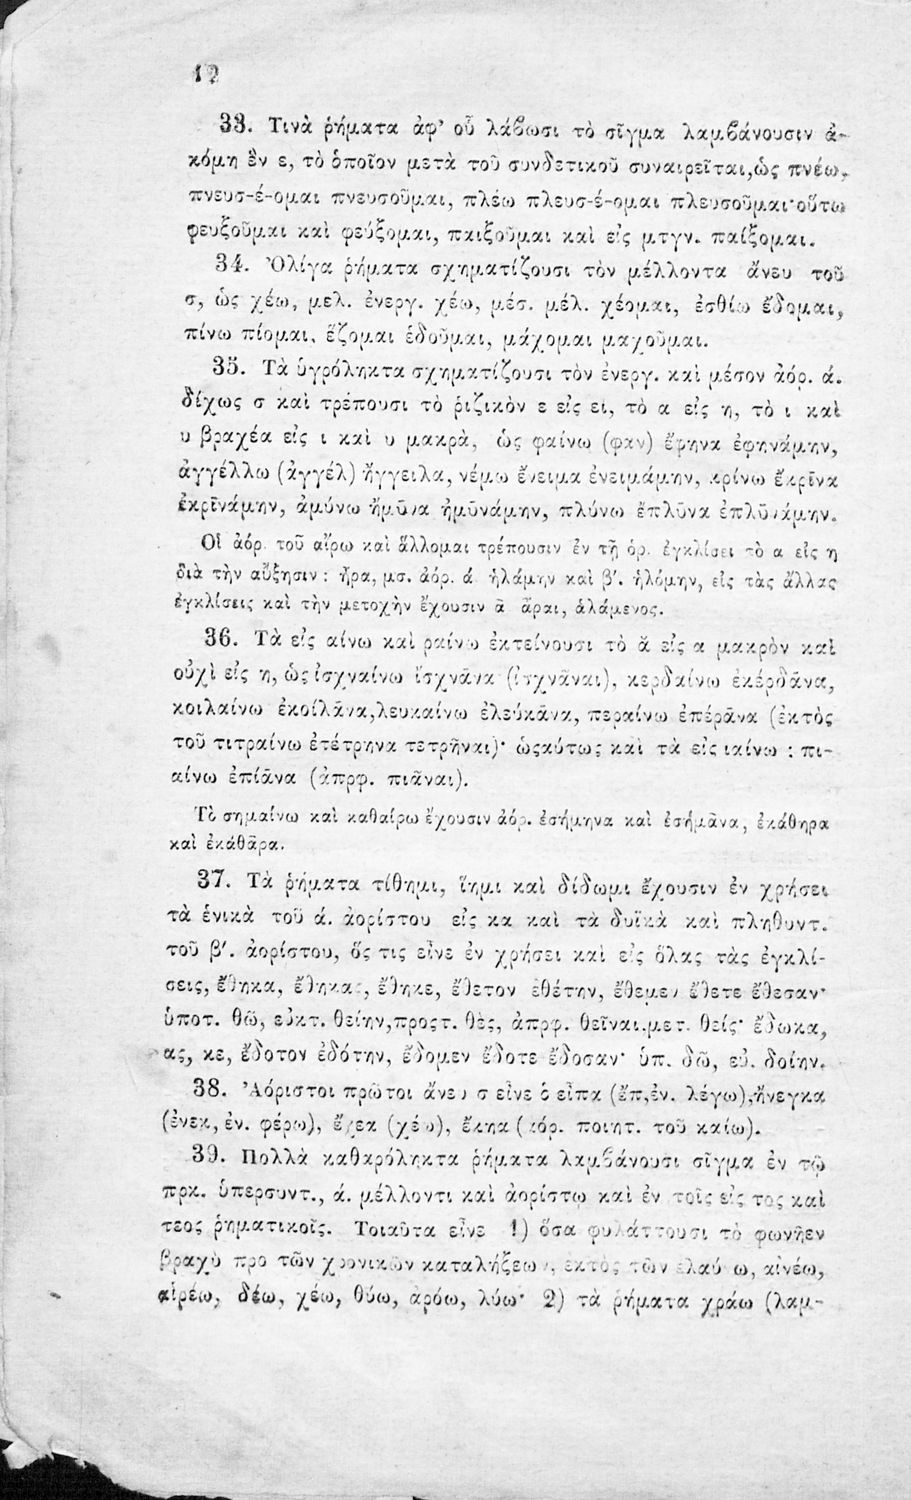 12
33. Τινὰ ῥήματα ἀφ’ οὗ λάβωσι τὸ σῖγμα λαμβάνουσιν ἀ-
κόμη ἓν ε, τὸ ὁποῖον μετὰ τοῦ συνδετικοῦ συναιρεῖται, ὡς πνέω,
πνευσ-έ-ομαι πνευσοῦμαι, πλέω πλευσ-έ-ομαι πλευσοῦμαι· οὕτω
φευξοῦμαι καὶ φεύξομαι, παιξοῦμαι καὶ εἰς μτγν. παίξομαι.
34. Ὀλίγα ῥήματα σχηματίζουσι τὸν μέλλοντα ἄνευ τοῦ
σ, ὡς χέω, μελ. ἐνεργ. χέω, μέσ. μέλ. χέομαι, ἐσθίω ἔδομαι,
πίνω πίομαι, ἕζομαι ἑδοῦμαι, μάχομαι μαχοῦμαι.
35. Τὰ ὑγρόληκτα σχηματίζουσι τὸν ἐνεργ. καὶ μέσον ἀόρ. ά.
δίχως σ καὶ τρέπουσι τὸ ῥιζικὸν ε εἰς ει, τὸ α εἰς η, τὸ ι καὶ
υ βραχέα εἰς ι καὶ υ μακρὰ, ὡς φαίνω (φαν) ἔφηνα ἐφηνάμην,
ἀγγέλλω (ἀγγέλ) ἤγγειλα, νέμω ἔνειμα ἐνειμάμην, κρίνω ἔκρῑνα
ἐκρῑνάμην, ἀμύνω ἤμῡνα ἠμῡνάμην, πλύνω ἔπλῡνα ἐπλῡνάμην.
Οἱ ἀόρ. τοῦ αἴρω καὶ ἅλλομαι τρέπουσιν ἐν τῇ ὁρ. ἐγκλίσει τὸ α εἰς η
διὰ τὴν αὔξησιν : ἦρα, μσ. ἀόρ. ά. ἡλάμην καὶ β′. ἡλόμην, εἰς τὰς ἄλλας
ἐγκλίσεις καὶ τὴν μετοχὴν ἔχουσιν ᾱ ἆραι, ἁλάμενος.
36. Τὰ εἰς αίνω καὶ ραίνω ἐκτείνουσι τὸ ᾰ εἰς α μακρὸν καὶ
οὐχὶ εἰς η, ὡς ἰσχναίνω ἴσχνᾱνα (ἰσχνᾶναι), κερδαίνω ἐκέρδᾱνα,
κοιλαίνω ἐκοίλᾱνα, λευκαίνω ἐλεύκᾱνα, περαίνω ἐπέρᾱνα (ἐκτὸς
τοῦ τιτραίνω ἐτέτρηνα τετρῆναι)· ὡςαύτως καὶ τὰ εἰς ιαίνω : πι-
αίνω ἐπίᾱνα (ἀπρφ. πιᾶναι).
Τὸ σημαίνω καὶ καθαίρω ἔχουσιν ἀόρ. ἐσήμηνα καὶ ἐσήμᾱνα, ἐκάθηρα
καὶ ἐκάθᾱρα.
37. Τὰ ῥήματα τίθημι, ἵημι καὶ δίδωμι ἔχουσιν ἐν χρήσει
τὰ ἑνικὰ τοῦ ά. ἀορίστου εἰς κα καὶ τὰ δυϊκὰ καὶ πληθυντ.
τοῦ β′. ἀορίστου, ὅς τις εἶνε ἐν χρήσει καὶ εἰς ὅλας τὰς ἐγκλί-
σεις, ἔθηκα, ἔθηκας, ἔθηκε, ἔθετον ἐθέτην, ἔθεμεν ἔθετε ἔθεσαν·
ὑποτ. θῶ, εὐκτ. θείην, προςτ. θὲς, ἀπρφ. θεῖναι. μετ. θείς· ἔδωκα,
ας, κε, ἔδοτον ἐδότην, ἔδομεν ἔδοτε ἔδοσαν· ὑπ. δῶ, εὐ. δοίην.
38. Ἀόριστοι πρῶτοι ἄνευ σ εἶνε ὁ εἶπα (ἔπ, ἐν. λέγω), ἤνεγκα
(ἐνεκ, ἐν. φέρω), ἔχεα (χέω), ἔκηα (ἀόρ. ποιητ. τοῦ καίω).
39. Πολλὰ καθαρόληκτα ῥήματα λαμβάνουσι σῖγμα ἐν τῷ
πρκ. ὑπερσυντ., ά. μέλλοντι καὶ ἀορίστῳ καὶ ἐν τοῖς εἰς τος καὶ
τεος ῥηματικοῖς. Τοιαῦτα εἶνε 1) ὅσα φυλάττουσι τὸ φωνῆεν
βραχὺ προ τῶν χρονικῶν καταλήξεων, ἐκτὸς τῶν ἐλαύνω, αἰνέω,
αἱρέω, δέω, χέω, θύω, ἀρόω, λύω· 2) τὰ ῥήματα χράω (λαμ-